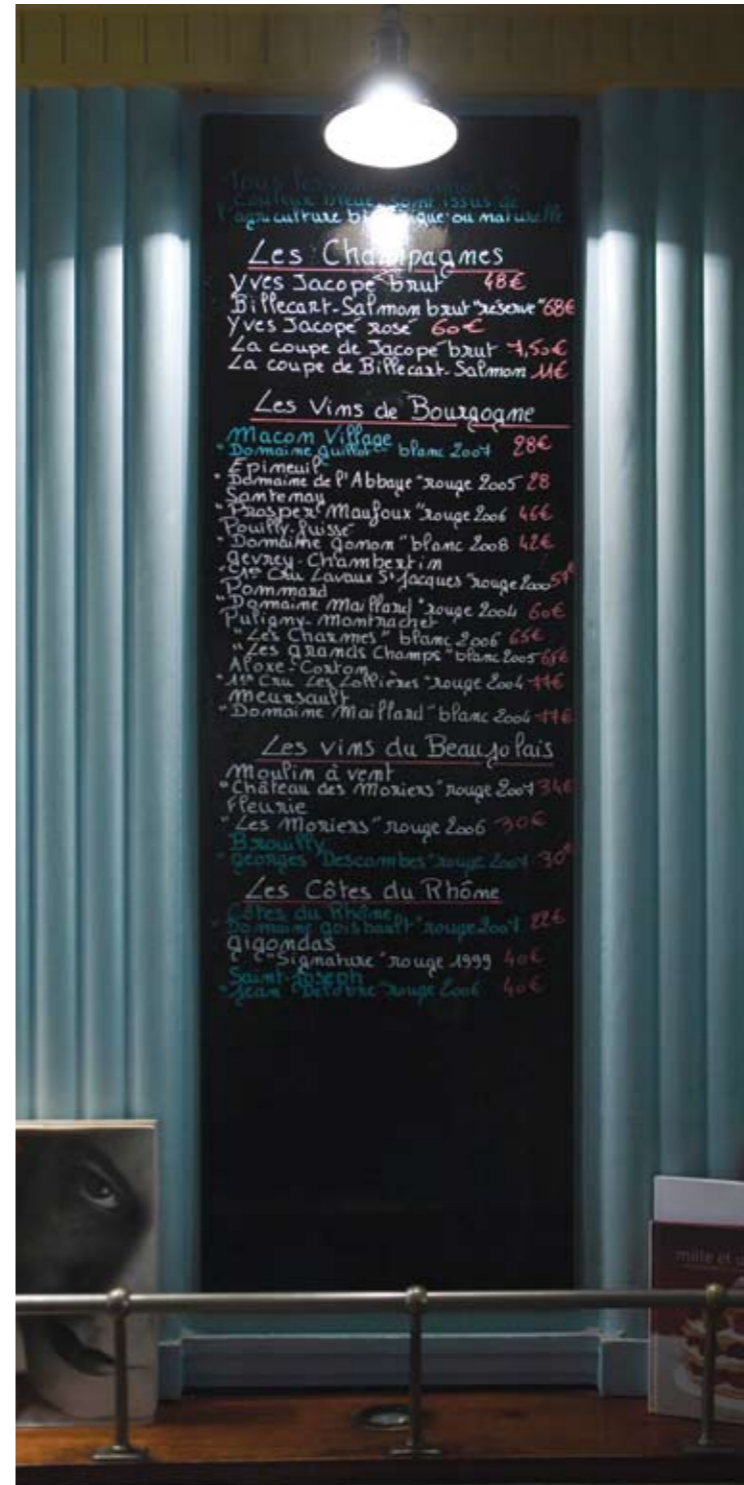 Tous les vins
couleur bleue sont issus de
l'agriculture biologique ou naturelle
Les Champagnes
Yves Jacopé brut 48€
Billecart-Salmon brut "réserve" 68€
Yves Jacopé rosé 60€
La coupe de Jacopé brut 7,50€
La coupe de Billecart-Salmon 11€
Les Vins de Bourgogne
Macon Village
"Domaine Guillot" blanc 2007 28€
Epineuil
"Domaine de l'Abbaye" rouge 2005 28
Santenay
"Prosper Maufoux" rouge 2006 46€
Pouilly-Fuissé
"Domaine Gonon" blanc 2008 42€
Gevrey-Chambertin
"1er Cru Lavaux St Jacques" rouge 2000
Pommard
"Domaine Maillard" rouge 2004 60€
Puligny-Montrachet
"Les Charmes" blanc 2006 65€
"Les grands Champs" blanc 2005
Aloxe-Corton
"1er Cru Les Lollières" rouge 2004 77€
Meursault
"Domaine Maillard" blanc 2004 77€
Les vins du Beaujolais
Moulin à vent
"Château des Moriers" rouge 2007 34€
Fleurie
"Les Moriers" rouge 2006 30€
Brouilly
"Georges Descombes" rouge 2007 30€
Les Côtes du Rhône
Côtes du Rhône
"Domaine Goisbault" rouge 2007 22€
Gigondas
"Signature" rouge 1999 40€
Saint-Joseph
"Jean Delobre" rouge 2006 40€
mille et